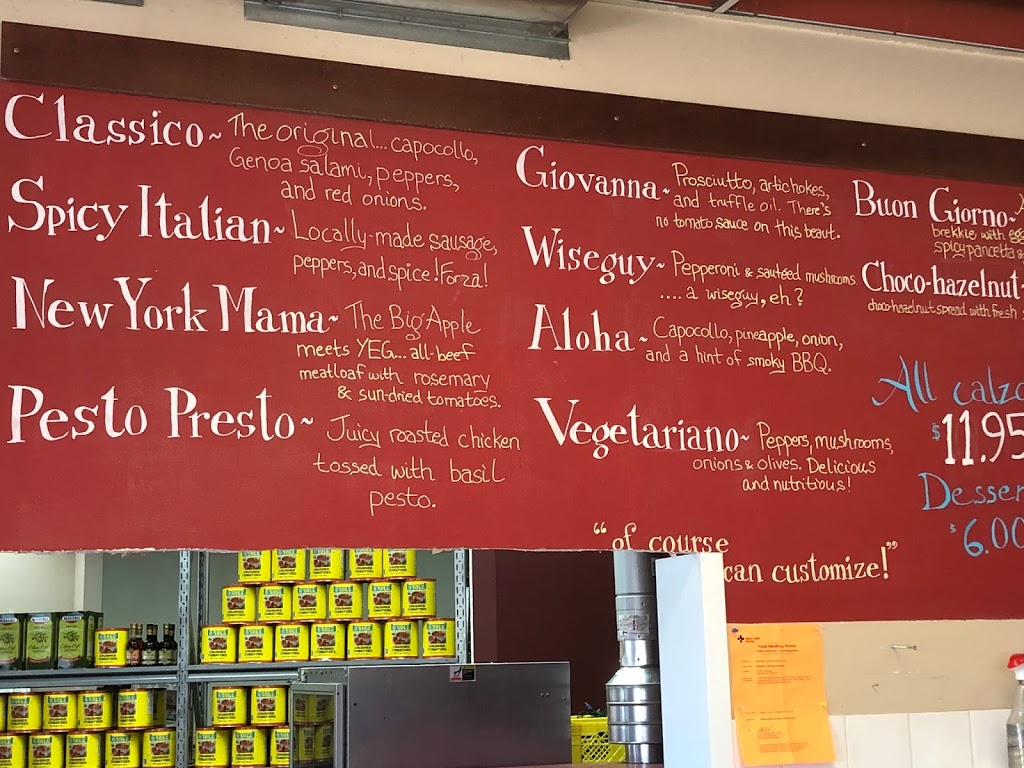 Classico~ The original... capocollo,
Genoa salami, peppers,
and red onions.
Spicy Italian~ Locally-made sausage,
peppers, and spice! Forza!
New York Mama~ The Big Apple
meets YEG... all-beef
meatloaf with rosemary
& sun-dried tomatoes.
Pesto Presto~ Juicy roasted chicken
tossed with basil
pesto.
Giovanna~ Prosciutto, artichokes,
and truffle oil. There's
no tomato sauce on this beaut.
Wiseguy~ Pepperoni & sautéed mushrooms
.... a wiseguy, eh?
Aloha~ Capocollo, pineapple, onion,
and a hint of smoky BBQ.
Vegetariano~ Peppers, mushrooms,
onions & olives. Delicious
and nutritious!
"of course
can customize!"
Buon Giorno~
brekkie with
spicy pancetta
Choco-hazelnut~
choco-hazelnut spread with fresh
All
$11.95
$6.00
CRUSHED
TOMATOES
Food Handling Permit